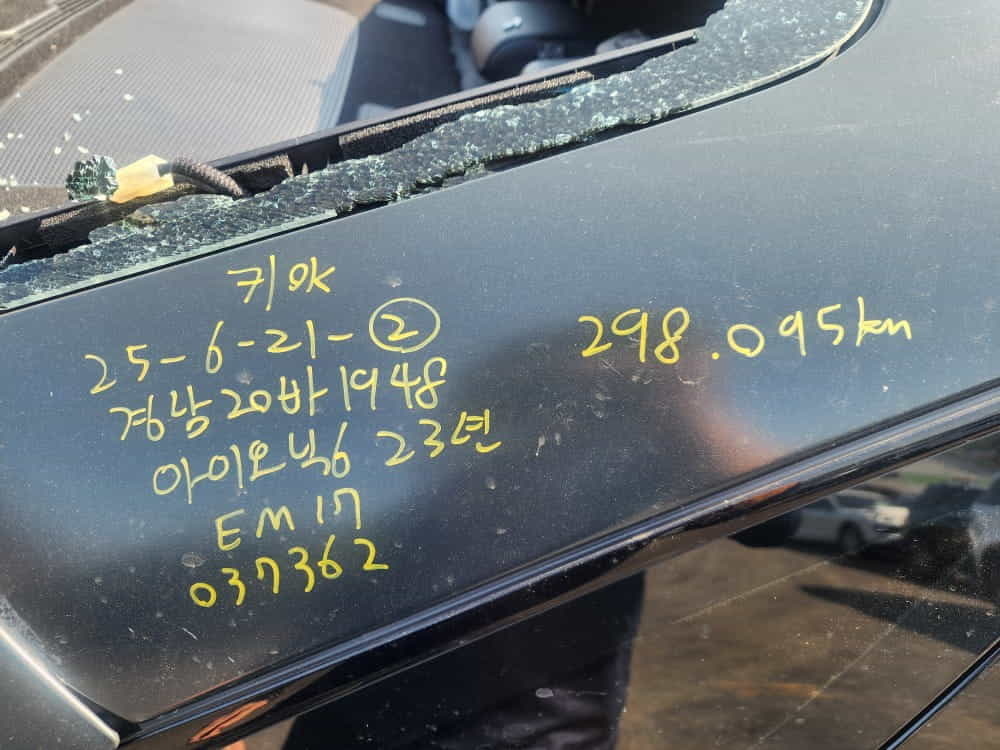 키 OK
25-6-21-②
경남20바1948
아이오닉6 23년
EM17
037362
298.095km